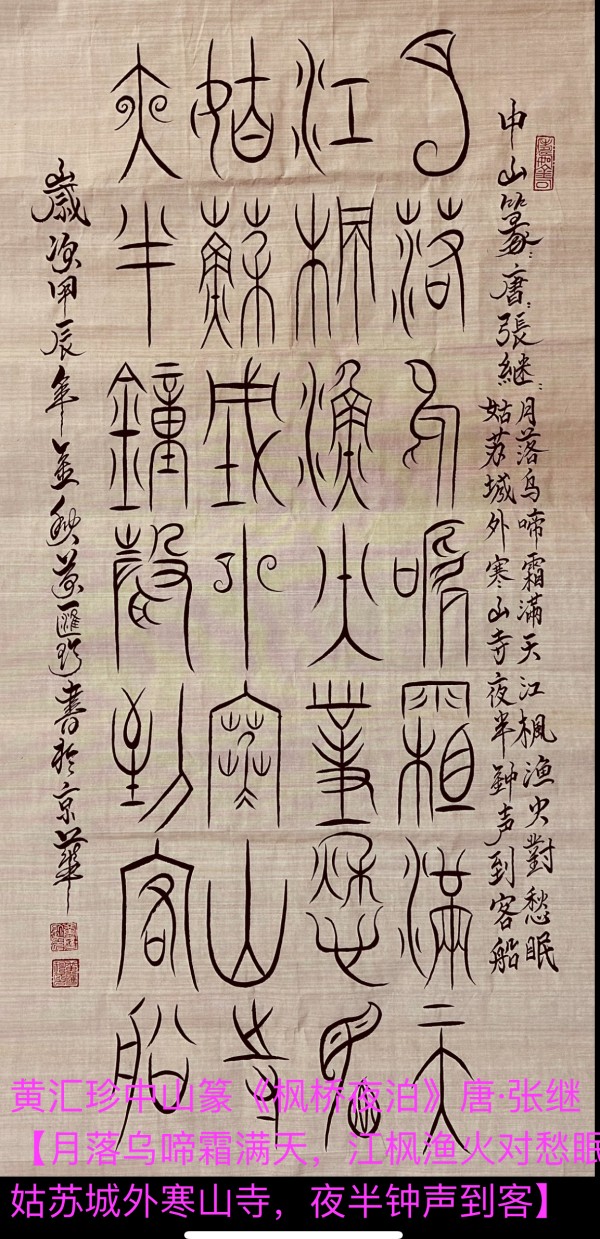 中山篆:唐:張継:
月落乌啼霜滿天江楓漁火對愁眠
姑苏城外寒山寺夜半鈡声到客船
月落烏啼霜滿天
江楓漁火對愁眠
姑蘇城外寒山寺
夜半鐘聲到客船
歲次甲辰年金秋黄匯珍書於京華
黄汇珍中山篆《枫桥夜泊》唐·张继
【月落乌啼霜满天，江枫渔火对愁眠
姑苏城外寒山寺，夜半钟声到客】